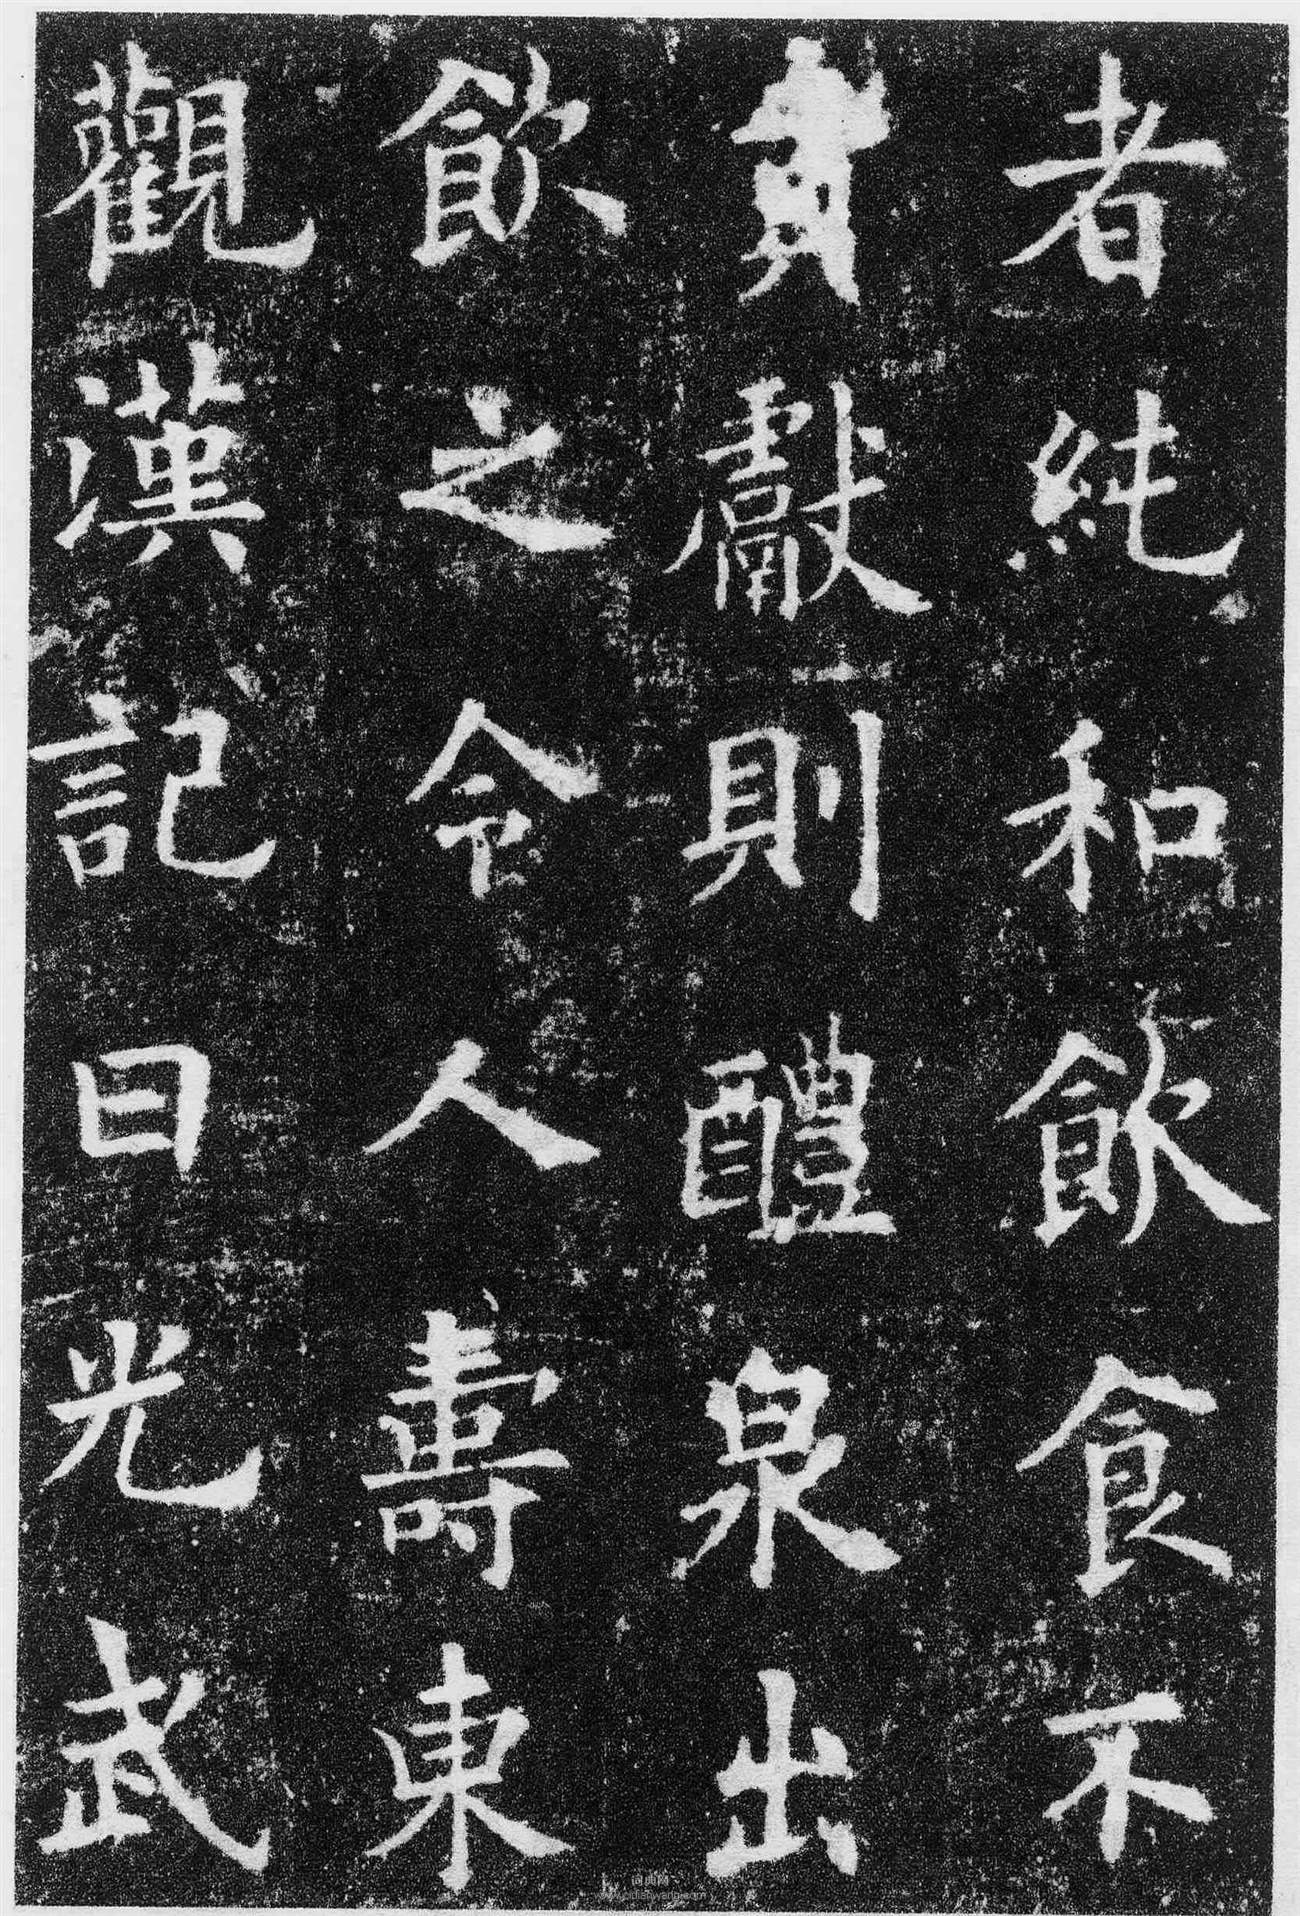 者純和飲食不
貢獻則醴泉出
飲之令人壽東
觀漢記曰光武
词典网
www.cidianwang.com